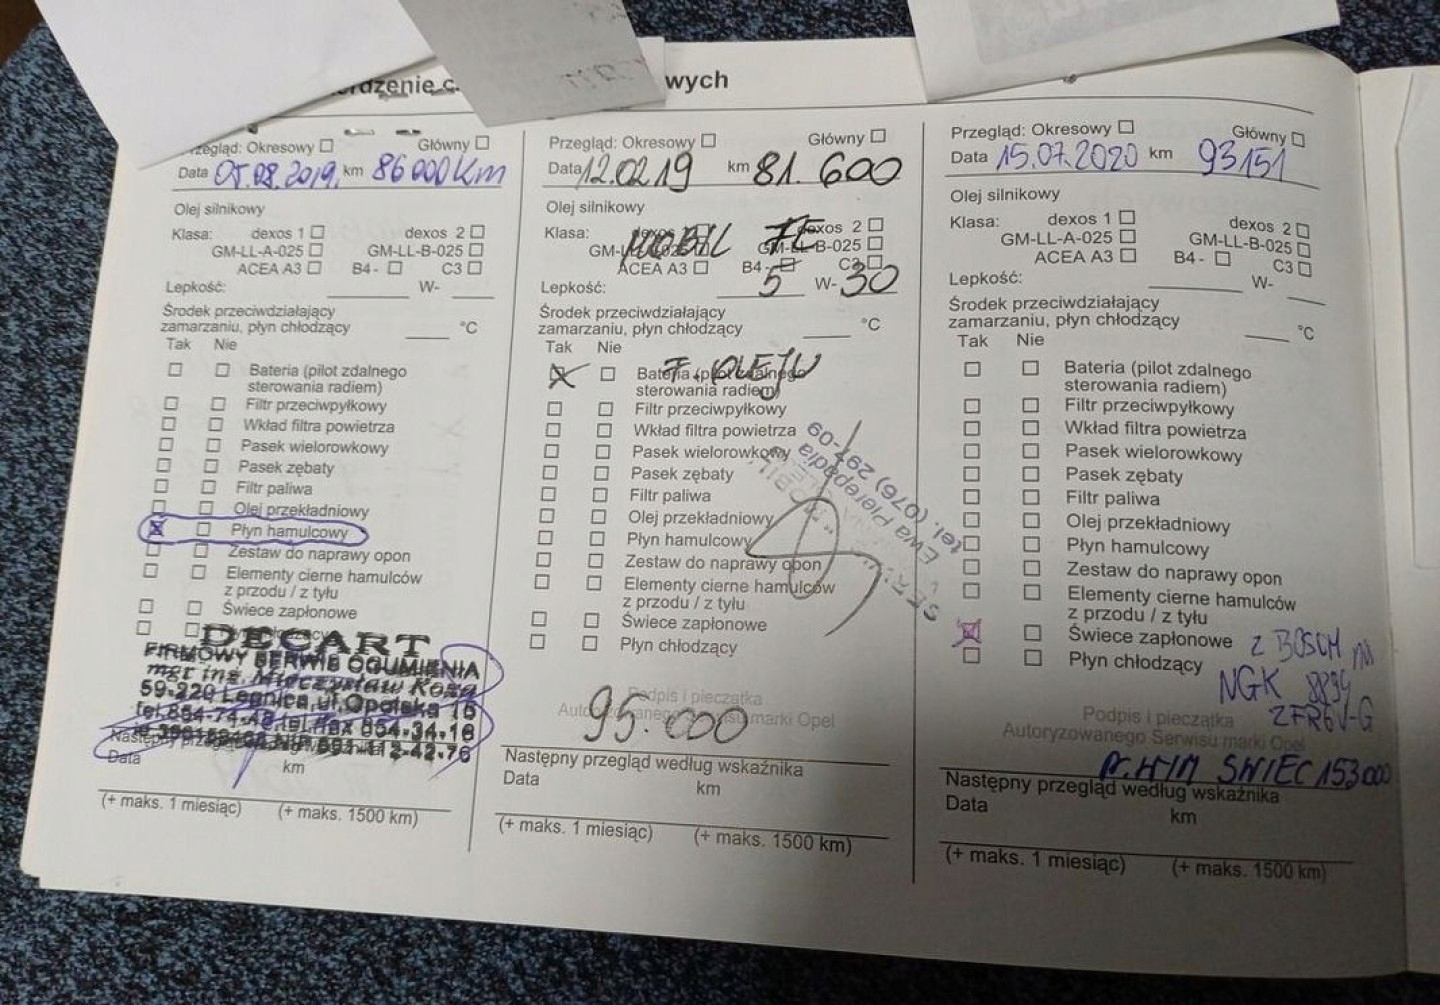 rdzenie c
wych
zegląd: Okresowy Główny
Data 05.08.2019 km 86000Km
Olej silnikowy
Klasa: dexos 1 dexos 2
GM-LL-A-025 GM-LL-B-025
ACEA A3 B4 - C3
Lepkość: W-
Środek przeciwdziałający
zamarzaniu, płyn chłodzący °C
Tak Nie
Bateria (pilot zdalnego
sterowania radiem)
Filtr przeciwpyłkowy
Wkład filtra powietrza
Pasek wielorowkowy
Pasek zębaty
Filtr paliwa
Olej przekładniowy
Płyn hamulcowy
Zestaw do naprawy opon
Elementy cierne hamulców
z przodu / z tyłu
Świece zapłonowe
DECART
FIRMOWY SERWIS OGUMIENIA
mgr inż. Mieczysław Koza
59-220 Legnica, ul. Opolska 16
tel. 854-74-48 tel./fax 854-34-16
Następny
Data km
(+ maks. 1 miesiąc) (+ maks. 1500 km)
Przegląd: Okresowy Główny
Data 12.02.19 km 81.600
Olej silnikowy
Klasa: MOBIL dexos 2
GM-LL-B-025
ACEA A3 B4 - C3
Lepkość: 5 W- 30
Środek przeciwdziałający
zamarzaniu, płyn chłodzący °C
Tak Nie
F. OLEJU
Bateria (pilot zdalnego
sterowania radiem)
Filtr przeciwpyłkowy
Wkład filtra powietrza
Pasek wielorowkowy
Pasek zębaty
Filtr paliwa
Olej przekładniowy
Płyn hamulcowy
Zestaw do naprawy opon
Elementy cierne hamulców
z przodu / z tyłu
Świece zapłonowe
Płyn chłodzący
Ewa Pierepadia
tel. (076) 297-09
Podpis i pieczątka
Autoryzowanego Serwisu marki Opel
95.000
Następny przegląd według wskaźnika
Data km
(+ maks. 1 miesiąc) (+ maks. 1500 km)
Przegląd: Okresowy Główny
Data 15.07.2020 km 93151
Olej silnikowy
Klasa: dexos 1 dexos 2
GM-LL-A-025 GM-LL-B-025
ACEA A3 B4 - C3
Lepkość: W-
Środek przeciwdziałający
zamarzaniu, płyn chłodzący °C
Tak Nie
Bateria (pilot zdalnego
sterowania radiem)
Filtr przeciwpyłkowy
Wkład filtra powietrza
Pasek wielorowkowy
Pasek zębaty
Filtr paliwa
Olej przekładniowy
Płyn hamulcowy
Zestaw do naprawy opon
Elementy cierne hamulców
z przodu / z tyłu
Świece zapłonowe Z BOSCH na
Płyn chłodzący NGK 8894
ZFR6V-G
Podpis i pieczątka
Autoryzowanego Serwisu marki Opel
SWIEC 153000
Następny przegląd według wskaźnika
Data km
(+ maks. 1 miesiąc) (+ maks. 1500 km)